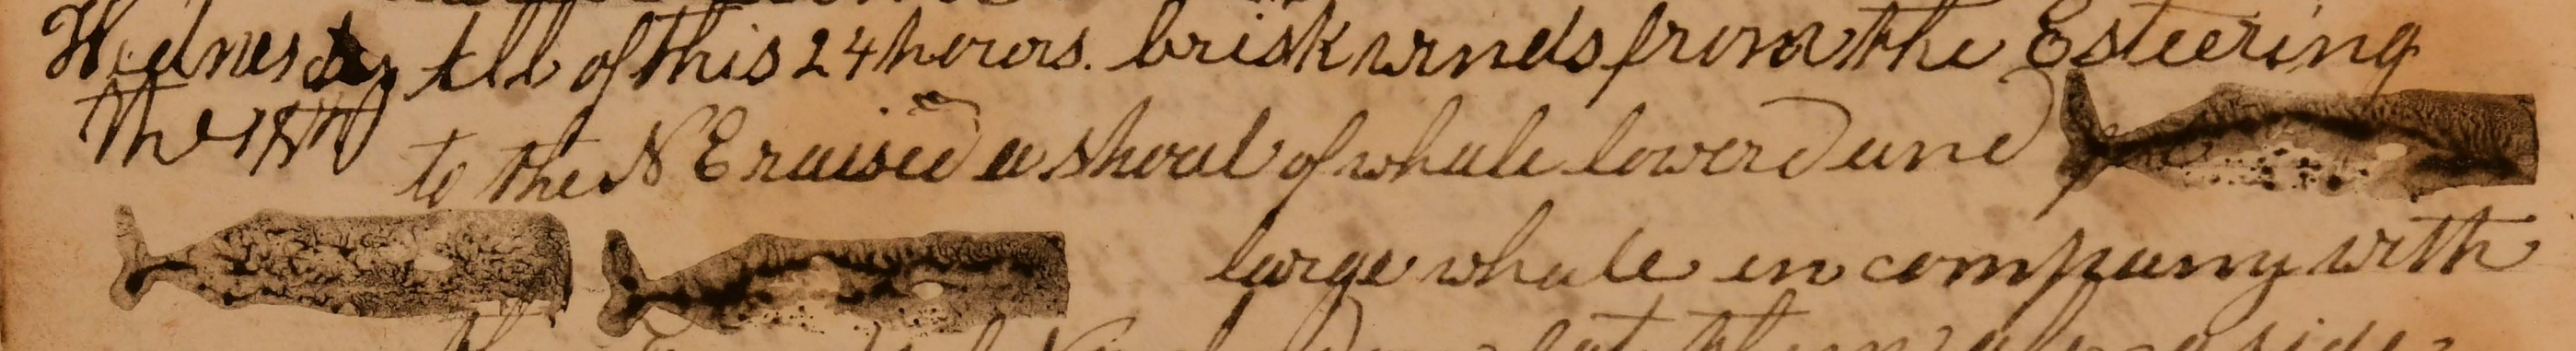 Wednesday All of this 24 hours. brisk winds from the E steering
The 18th to the N E raised a shoal of whale lowerd and
large whale in company with